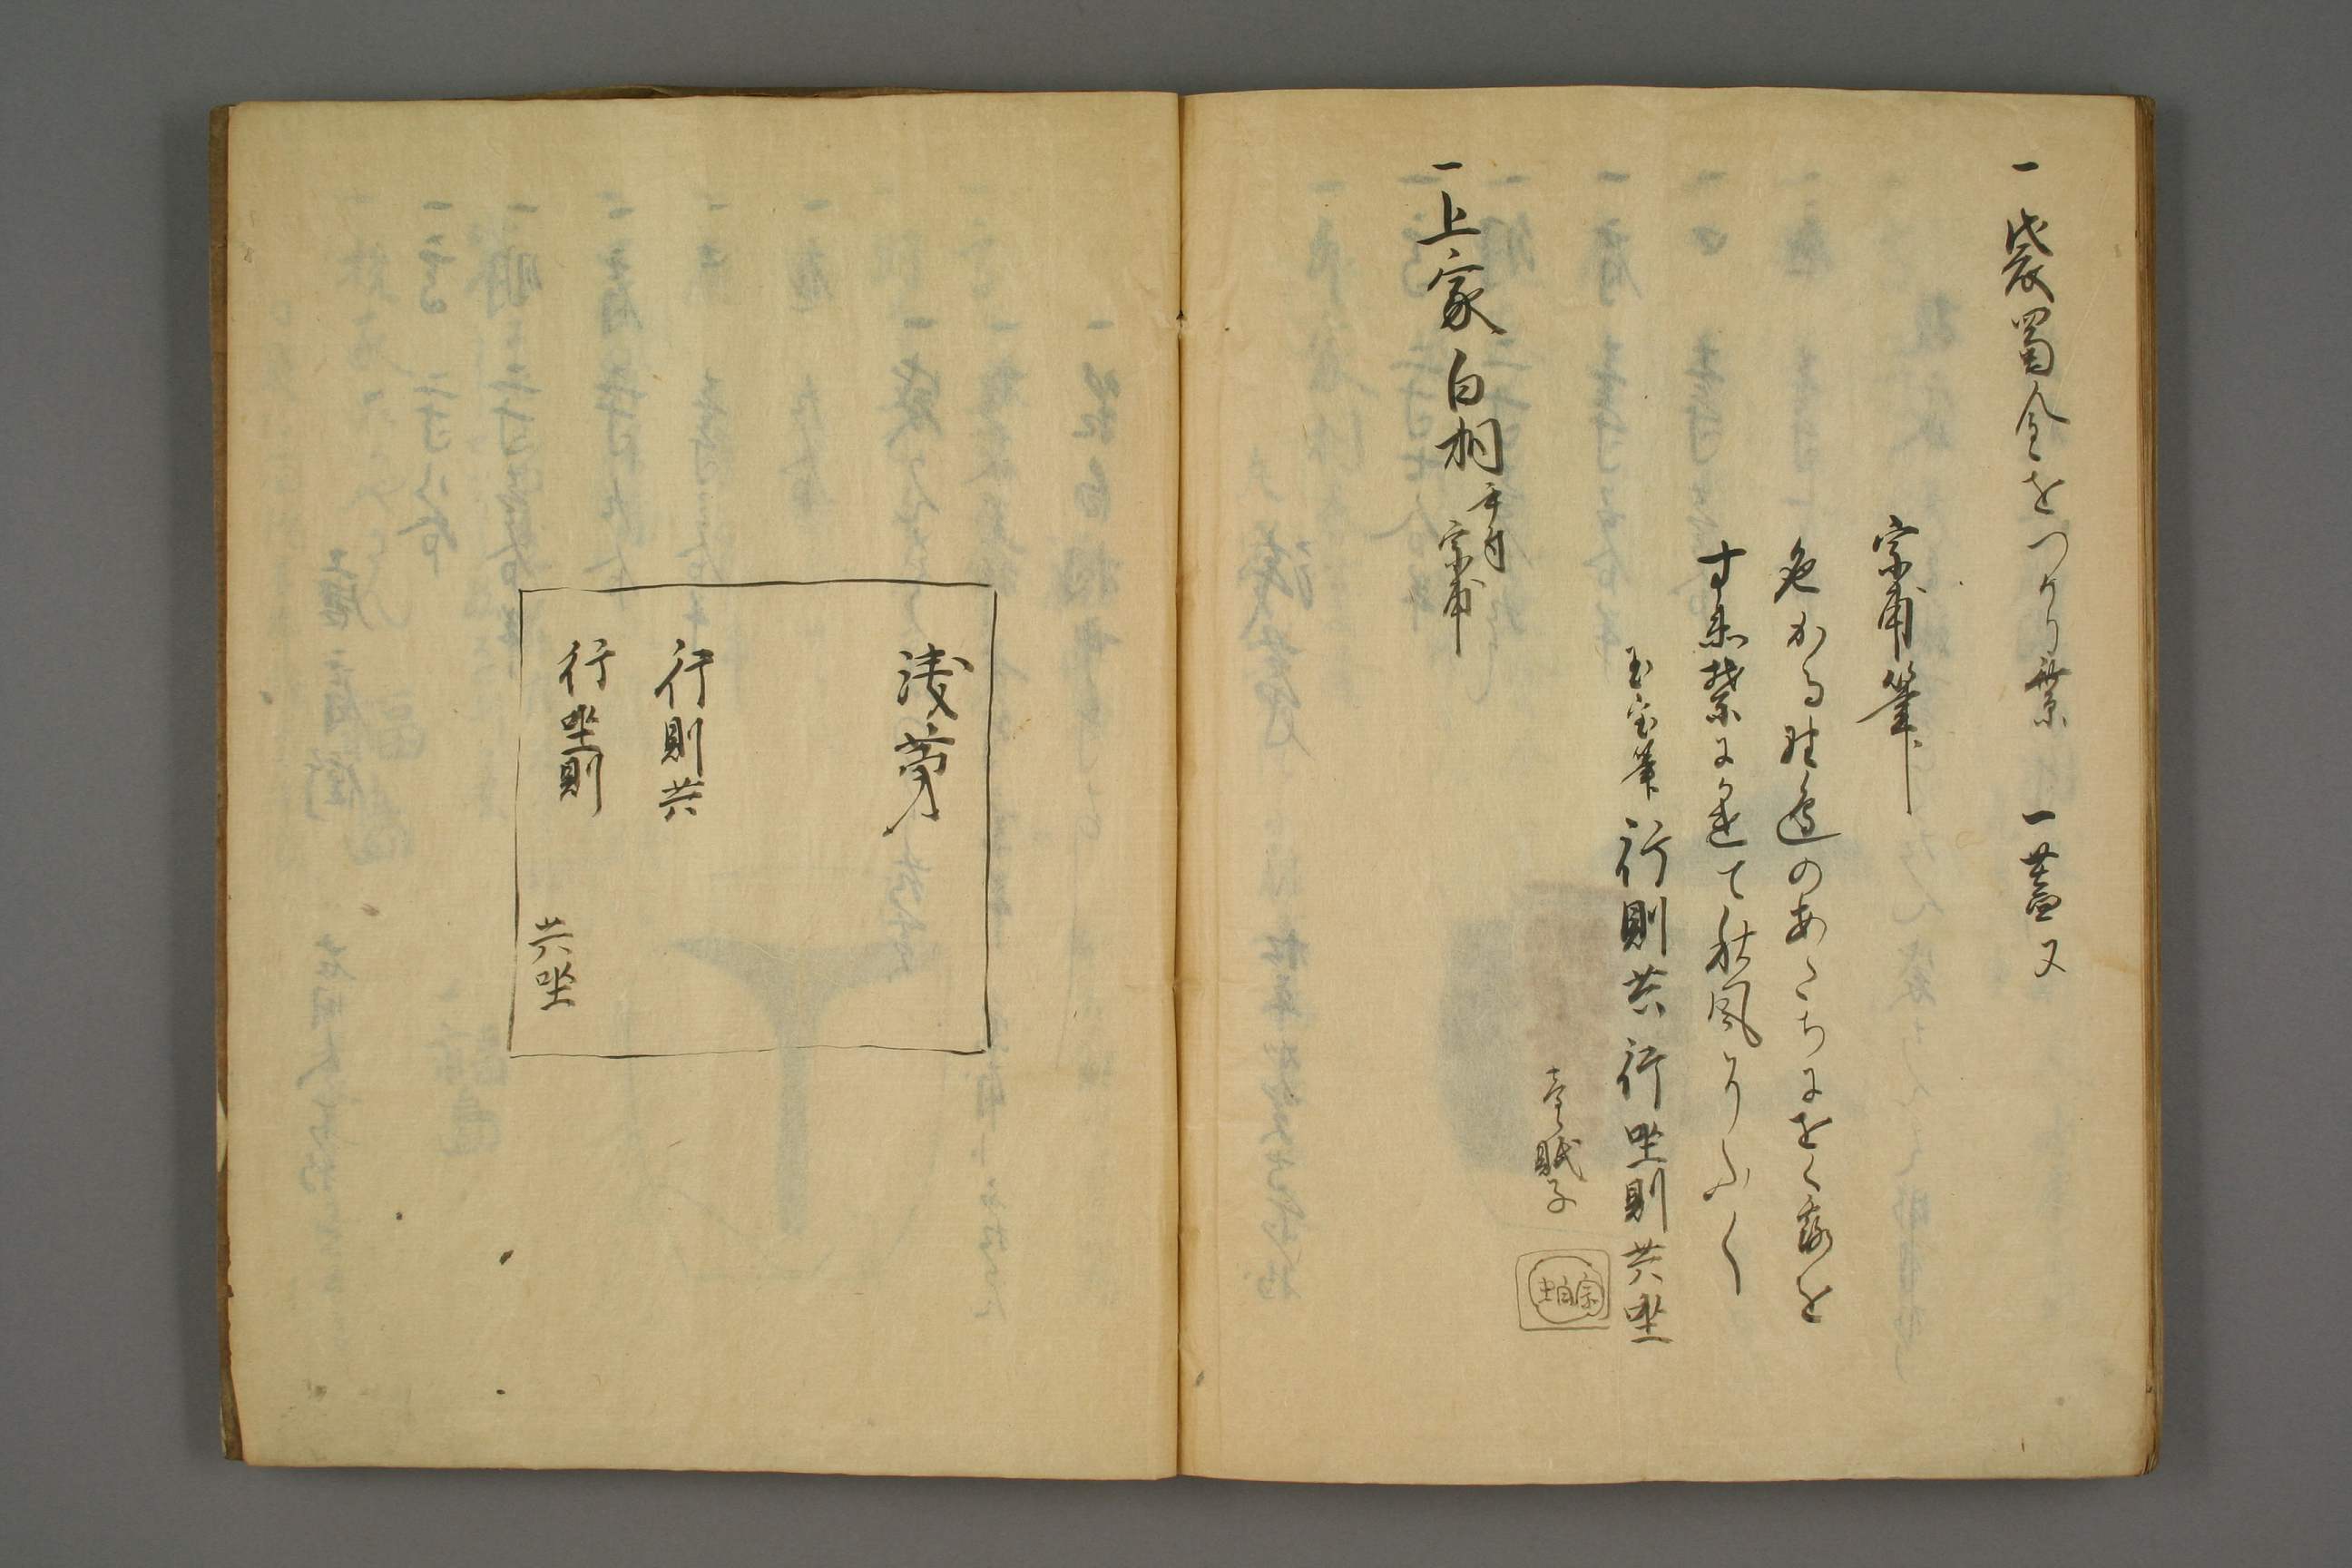 一 袋蜀金をつかり紫 一 蓋又
宗甫筆
色かる野邊のあさちにをく露を
すゑ葉にかけて秋風そふく
玉室筆 行則共 行坐則共坐
宗眠子
一 上家 白桐 平付 宗甫
浅茅
行則共
行坐則
共坐